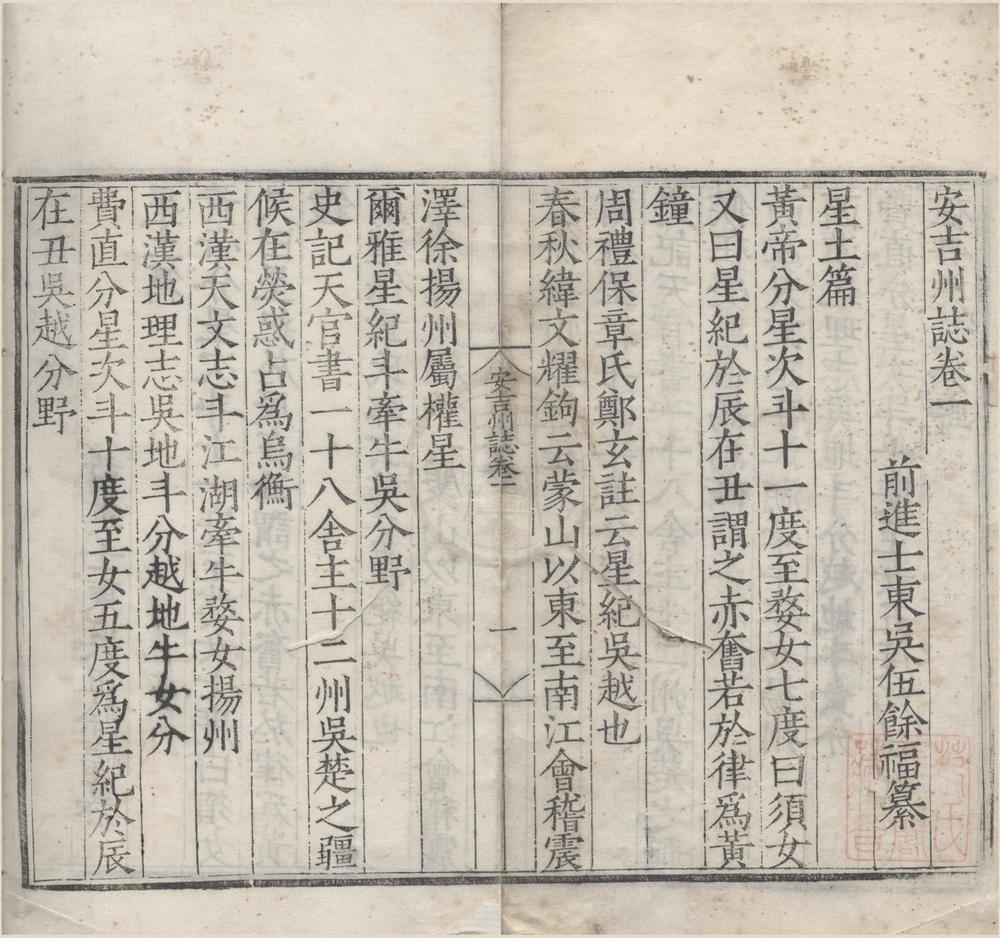 安吉州誌卷一
前進士東吳伍餘福纂
星土篇
黃帝分星次斗十一度至婺女七度曰須女
又曰星紀於辰在丑謂之赤奮若於律爲黃
鐘
周禮保章氏鄭玄註云星紀吳越也
春秋緯文耀鉤云蒙山以東至南江會稽震
安吉州誌卷一
一
澤徐揚州屬權星
爾雅星紀斗牽牛吳分野
史記天官書一十八舍主十二州吳楚之疆
候在熒惑占爲鳥衡
西漢天文志斗江湖牽牛婺女揚州
西漢地理志吳地斗分越地牛女分
費直分星次斗十度至女五度爲星紀於辰
在丑吳越分野